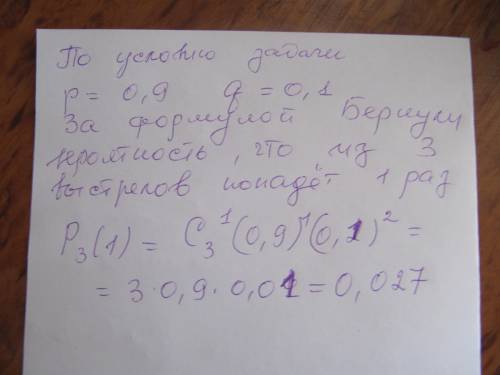 По условию задачи
p = 0,9 q = 0,1
За формулой Бернули
вероятность, что из 3
выстрелов попадёт 1 раз
P₃(1) = C₃¹(0,9)¹(0,1)² =
= 3·0,9·0,01 = 0,027